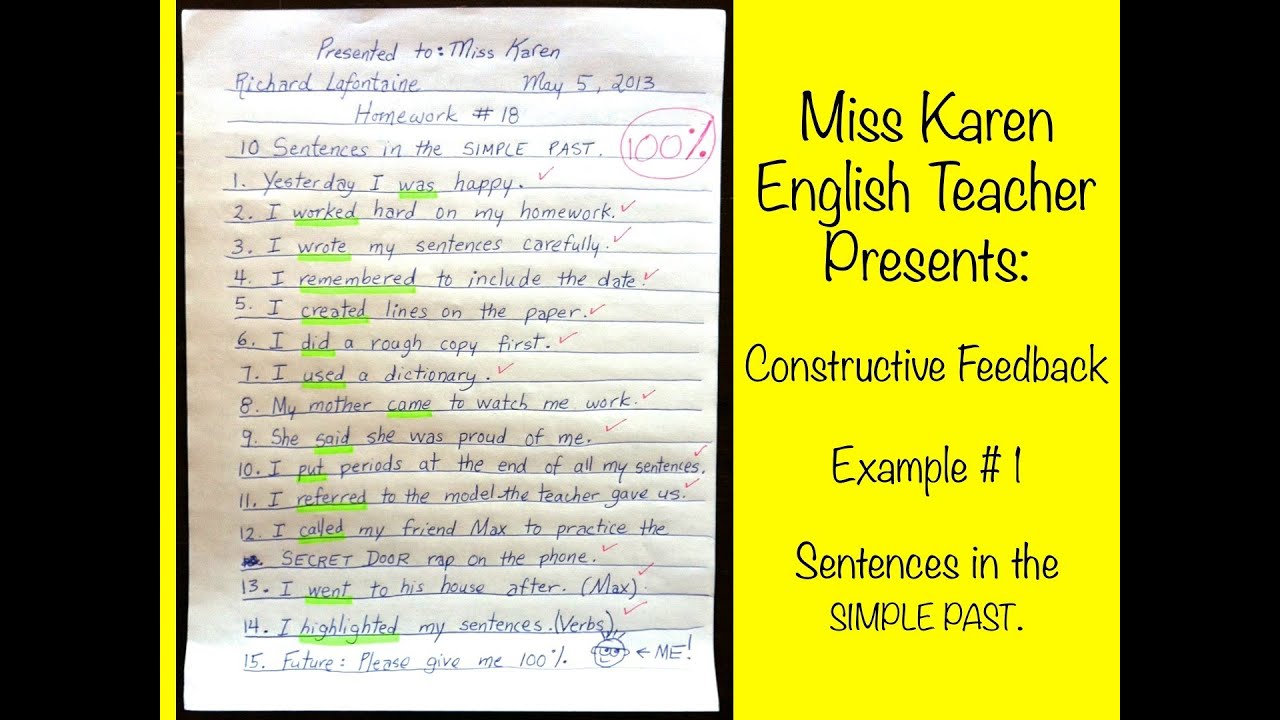 Presented to: Miss Karen
Richard Lafontaine May 5, 2013
Homework # 18
10 Sentences in the SIMPLE PAST.
100%
1. Yesterday I was happy.
2. I worked hard on my homework.
3. I wrote my sentences carefully.
4. I remembered to include the date.
5. I created lines on the paper.
6. I did a rough copy first.
7. I used a dictionary.
8. My mother came to watch me work.
9. She said she was proud of me.
10. I put periods at the end of all my sentences.
11. I referred to the model the teacher gave us.
12. I called my friend Max to practice the
SECRET DOOR rap on the phone.
13. I went to his house after. (Max)
14. I highlighted my sentences. (Verbs)
15. Future: Please give me 100% ← ME!
Miss Karen
English Teacher
Presents:
Constructive Feedback
Example # 1
Sentences in the
SIMPLE PAST.